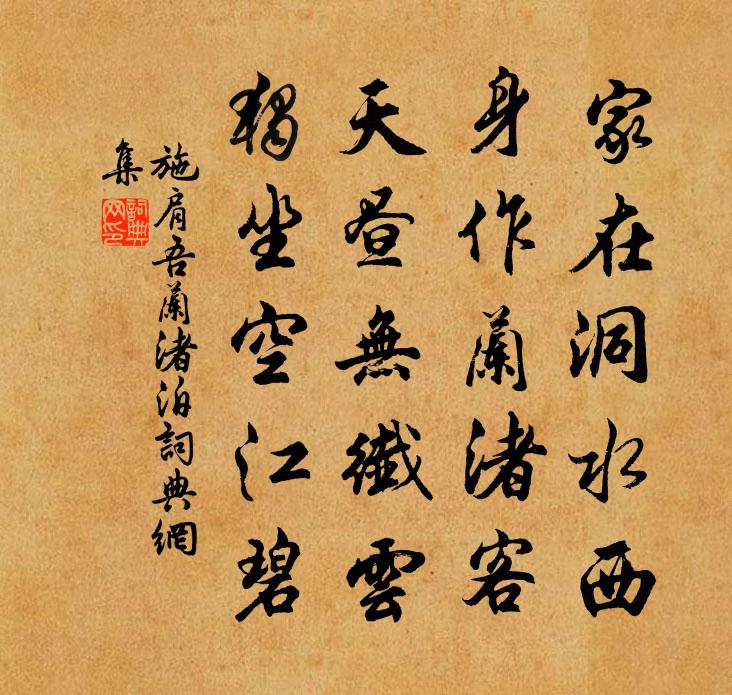 家在洞水西
身作蘭渚客
天晝無纖雲
獨坐空江碧
施肩吾蘭渚泊詞典網
集
詞典网印